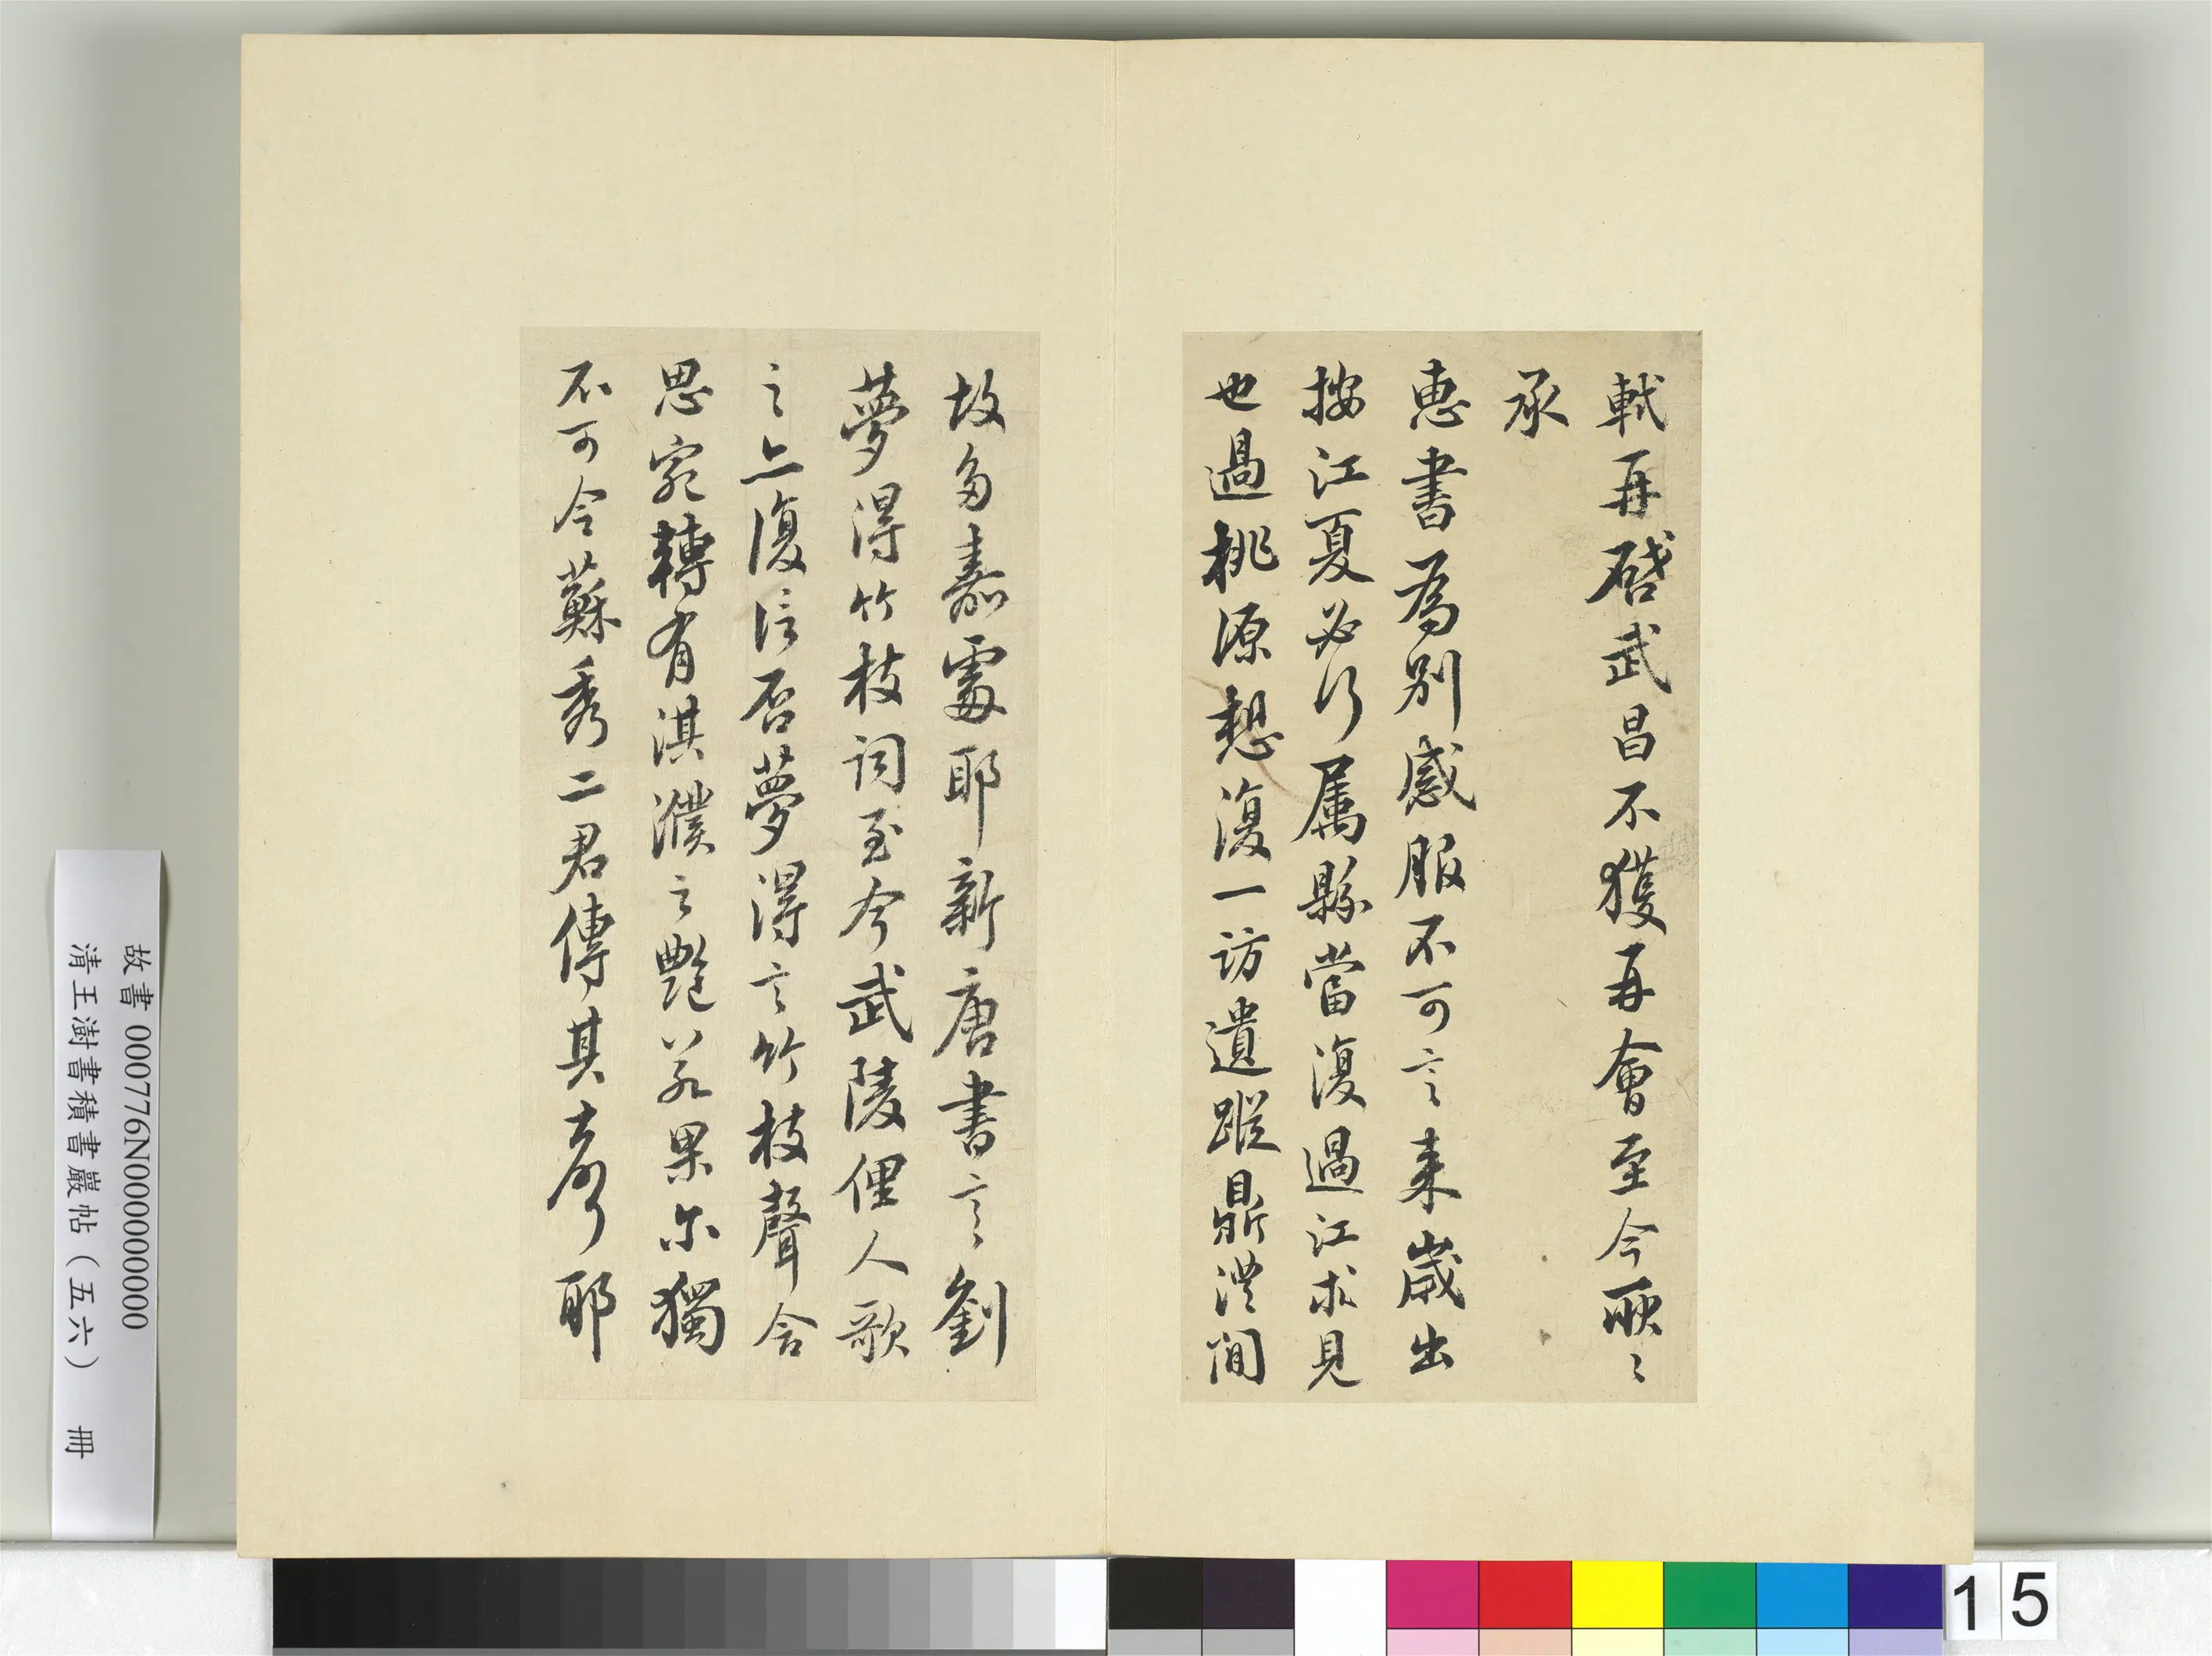 軾再啓武昌不獲再會至今耿〻
承
惠書為别感服不可言来歲出
按江夏必行屬縣當復過江求見
也過桃源想復一訪遺蹤鼎澧閒
故多嘉處耶新唐書言劉
夢得竹枝詞至今武陵俚人歌
之亦復信否夢得言竹枝聲含
思宛轉有淇濮之艷若果尔獨
不可令蘇秀二君傳其聲耶
故書 000776N000000000
清王澍書積書巖帖(五六) 冊
15